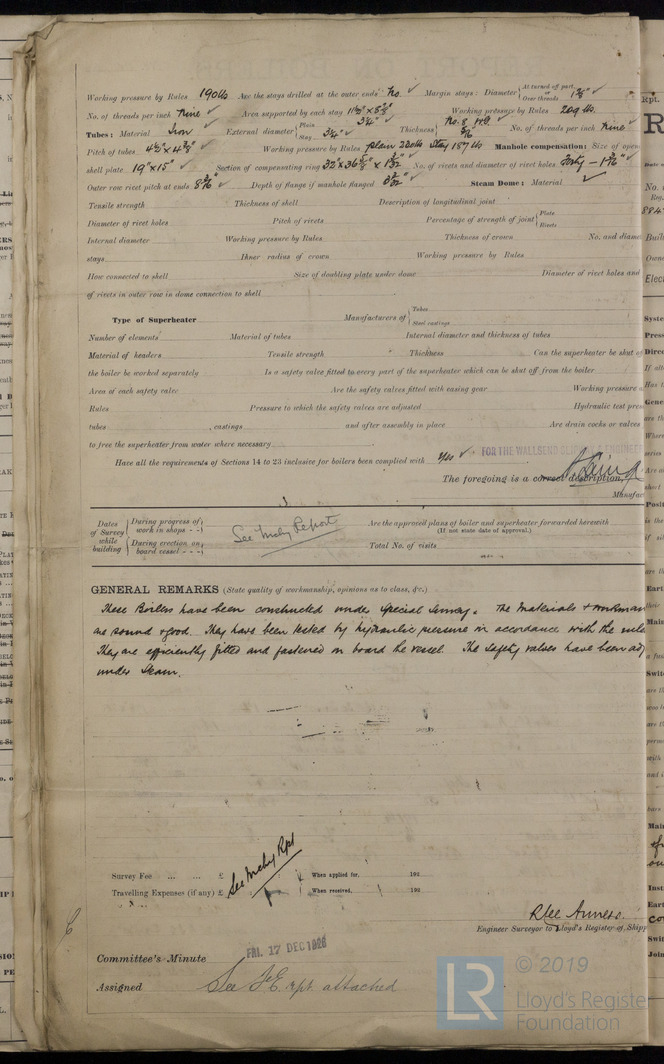 Working pressure by Rules 190 lbs Are the stays drilled at the outer ends? No. Margin stays: Diameter { At turned off part, or Over threads 1 3/4"
No. of threads per inch Nine Area supported by each stay Working pressure by Rules 209 lbs.
Tubes: Material Iron External diameter { Plain 3 1/4" Stay 3 1/4" Thickness { No. 8 5/16" No. of threads per inch Nine
Pitch of tubes 4 1/2" x 4 3/8" Working pressure by Rules Plain 220 lbs Stay 187 lbs Manhole compensation: Size of open
shell plate 19" x 15" Section of compensating ring No. of rivets and diameter of rivet holes
Outer row rivet pitch at ends Depth of flange if manhole flanged Steam Dome: Material
Tensile strength Thickness of shell Description of longitudinal joint
Diameter of rivet holes Pitch of rivets Percentage of strength of joint { Plate Rivets
Internal diameter Working pressure by Rules Thickness of crown No. and diame
stays Inner radius of crown Working pressure by Rules
How connected to shell Size of doubling plate under dome Diameter of rivet holes and
of rivets in outer row in dome connection to shell
Type of Superheater Manufacturers of { Tubes Steel castings
Number of elements Material of tubes Internal diameter and thickness of tubes
Material of headers Tensile strength Thickness Can the superheater be shut of
the boiler be worked separately Is a safety valve fitted to every part of the superheater which can be shut off from the boiler
Area of each safety valve Are the safety valves fitted with easing gear Working pressure a
Rules Pressure to which the safety valves are adjusted Hydraulic test pres
tubes , castings and after assembly in place Are drain cocks or valves
to free the superheater from water where necessary
Have all the requirements of Sections 14 to 23 inclusive for boilers been complied with Yes
FOR THE WALLSEND SLIPWAY & ENGINEER
The foregoing is a correct description,
Manufac
Dates of Survey while building { During progress of work in shops - - During erection on board vessel - - - See Mchy Report
Are the approved plans of boiler and superheater forwarded herewith
(If not state date of approval.)
Total No. of visits
GENERAL REMARKS (State quality of workmanship, opinions as to class, &c.)
These Boilers have been constructed under Special Survey. The Materials & workman
are sound & good. They have been tested by hydraulic pressure in accordance with the rule
They are efficiently fitted and fastened on board the vessel. The Safety valves have been adj
under Steam.
Survey Fee ... ... £ See Mchy Rpt When applied for, 192
Travelling Expenses (if any) £ When received, 192
Engineer Surveyor to Lloyd's Register of Shipp
Committee's Minute FRI. 17 DEC 1926
Assigned See F.E. rpt. attached
LR © 2019
Lloyd's Registe
Foundation